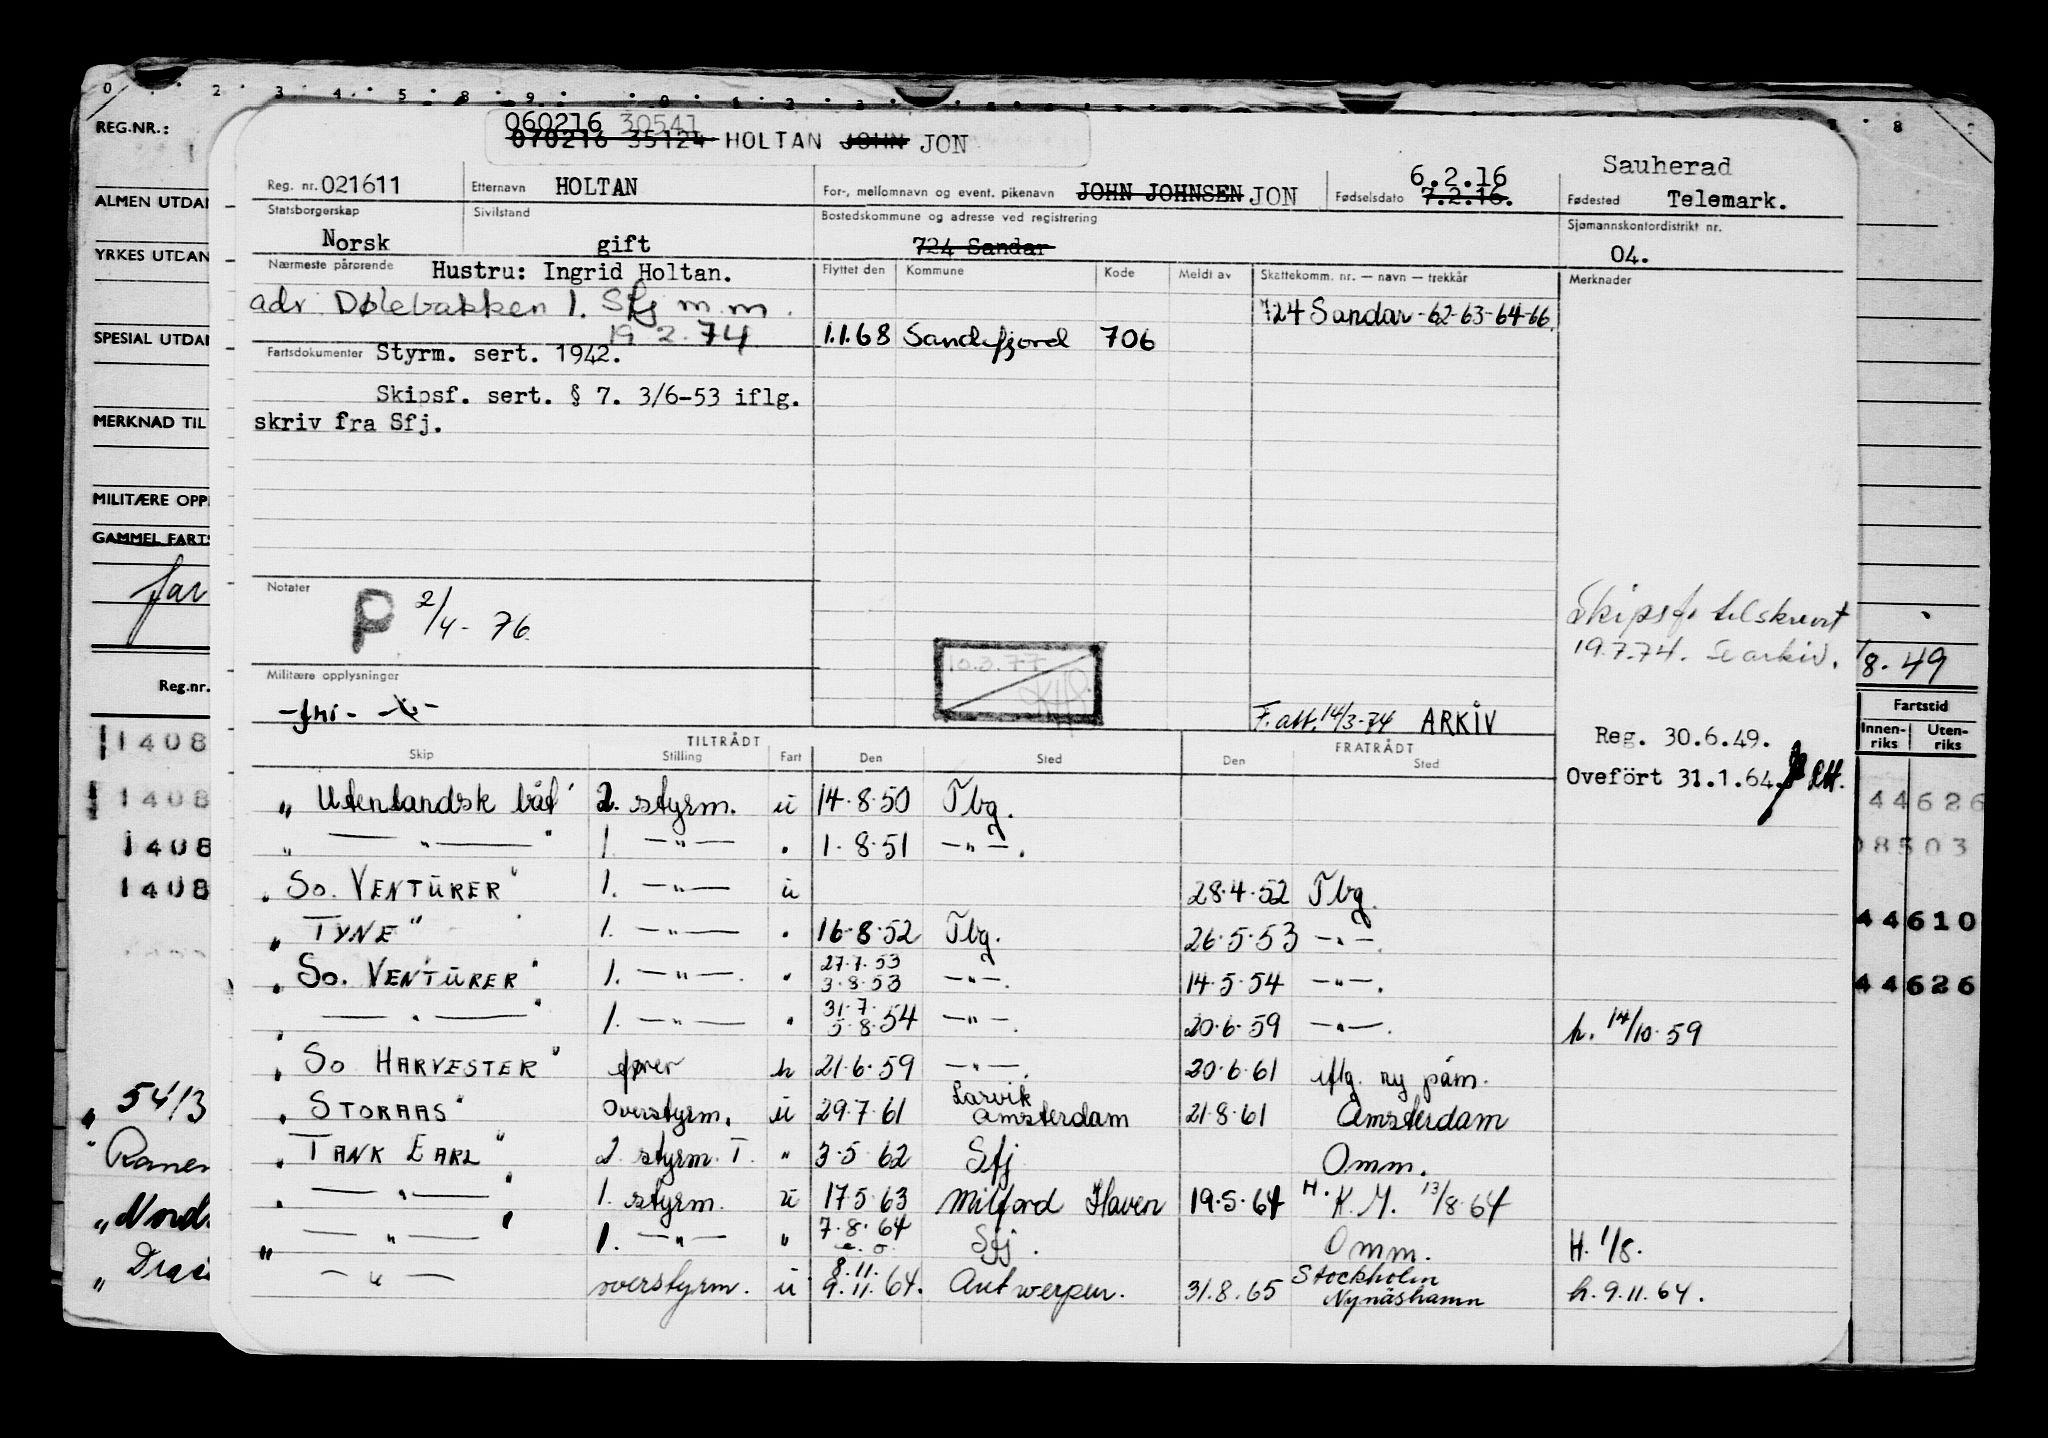 060216 30541
070216 35124 HOLTAN JOHN JON
REG.NR.:
ALMEN UTDAN
YRKES UTDAN
SPESIAL UTDAN
MERKNAD TIL
MILITÆRE OPP
GAMMEL FARTS
Reg.nr.
1408
1408
1408
1408
5413
Reg. nr. 021611 Etternavn HOLTAN For-, mellomnavn og event. pikenavn JOHN JOHNSEN JON Fødselsdato 6.2.16 7.2.16. Fødested Sauherad Telemark.
Statsborgerskap Norsk Sivilstand gift Bostedskommune og adresse ved registrering 724 Sandar Sjømannskontordistrikt nr. 04.
Nærmeste pårørende Hustru: Ingrid Holtan. Flyttet den Kommune Kode Meldt av Skattekomm. nr. — navn — trekkår Merknader
adr Dølebakken 1. Sfj m.m. 724 Sandar -62-63-64-66
19.2.74 1.1.68 Sandefjord 706
Fartsdokumenter Styrm. sert. 1942.
Skipsf. sert. § 7. 3/6-53 iflg.
skriv fra Sfj.
Notater P 2/4-76
Skipsf. tilskrevet
19.7.74. Se arkiv.
10.3.77
Militære opplysninger
-fri-
F. att. 14/3-74 ARKIV
Reg. 30.6.49.
Oveført 31.1.64.
TILTRÅDT FRATRÅDT
Skip Stilling Fart Den Sted Den Sted
" Utenlandsk båt" 2. styrm. u 14.8.50 Tbg.
" — " — " 1. — " — " 1.8.51 — " —.
" So. VENTURER" 1. — " — u 28.4.52 Tbg.
" TYNE" 1. — " — " 16.8.52 Tbg. 26.5.53 — " —.
" So. VENTURER" 1. — " — " 27.7.53 3.8.53 — " —. 14.5.54 — " —.
" — " — " 1. — " — " 31.7. 5.8.54 — " —. 20.6.59 — " —. h. 14/10.59
" So HARVESTER" fører h 21.6.59 — " —. 20.6.61 iflg. ny påm.
" STORAAS" Overstyrm. u 29.7.61 Larvik Amsterdam 21.8.61 Amsterdam
" TANK EARL" 2. styrm. T. " 3.5.62 Sfj Omm.
" — " — " 1. styrm. u 17.5.63 Milford Haven 19.5.64 H. K.M. 13/8.64
" — " — " 1. — " — " 7.8.64 e.o. Sfj. Omm. H. 1/8.
— " — overstyrm. u 8.11. 9.11.64. Antwerpen. 31.8.65 Stockholm Nynäshamn h. 9.11.64.
8.49
Fartstid
Innen-riks Uten-riks
44626
08503
44610
44626